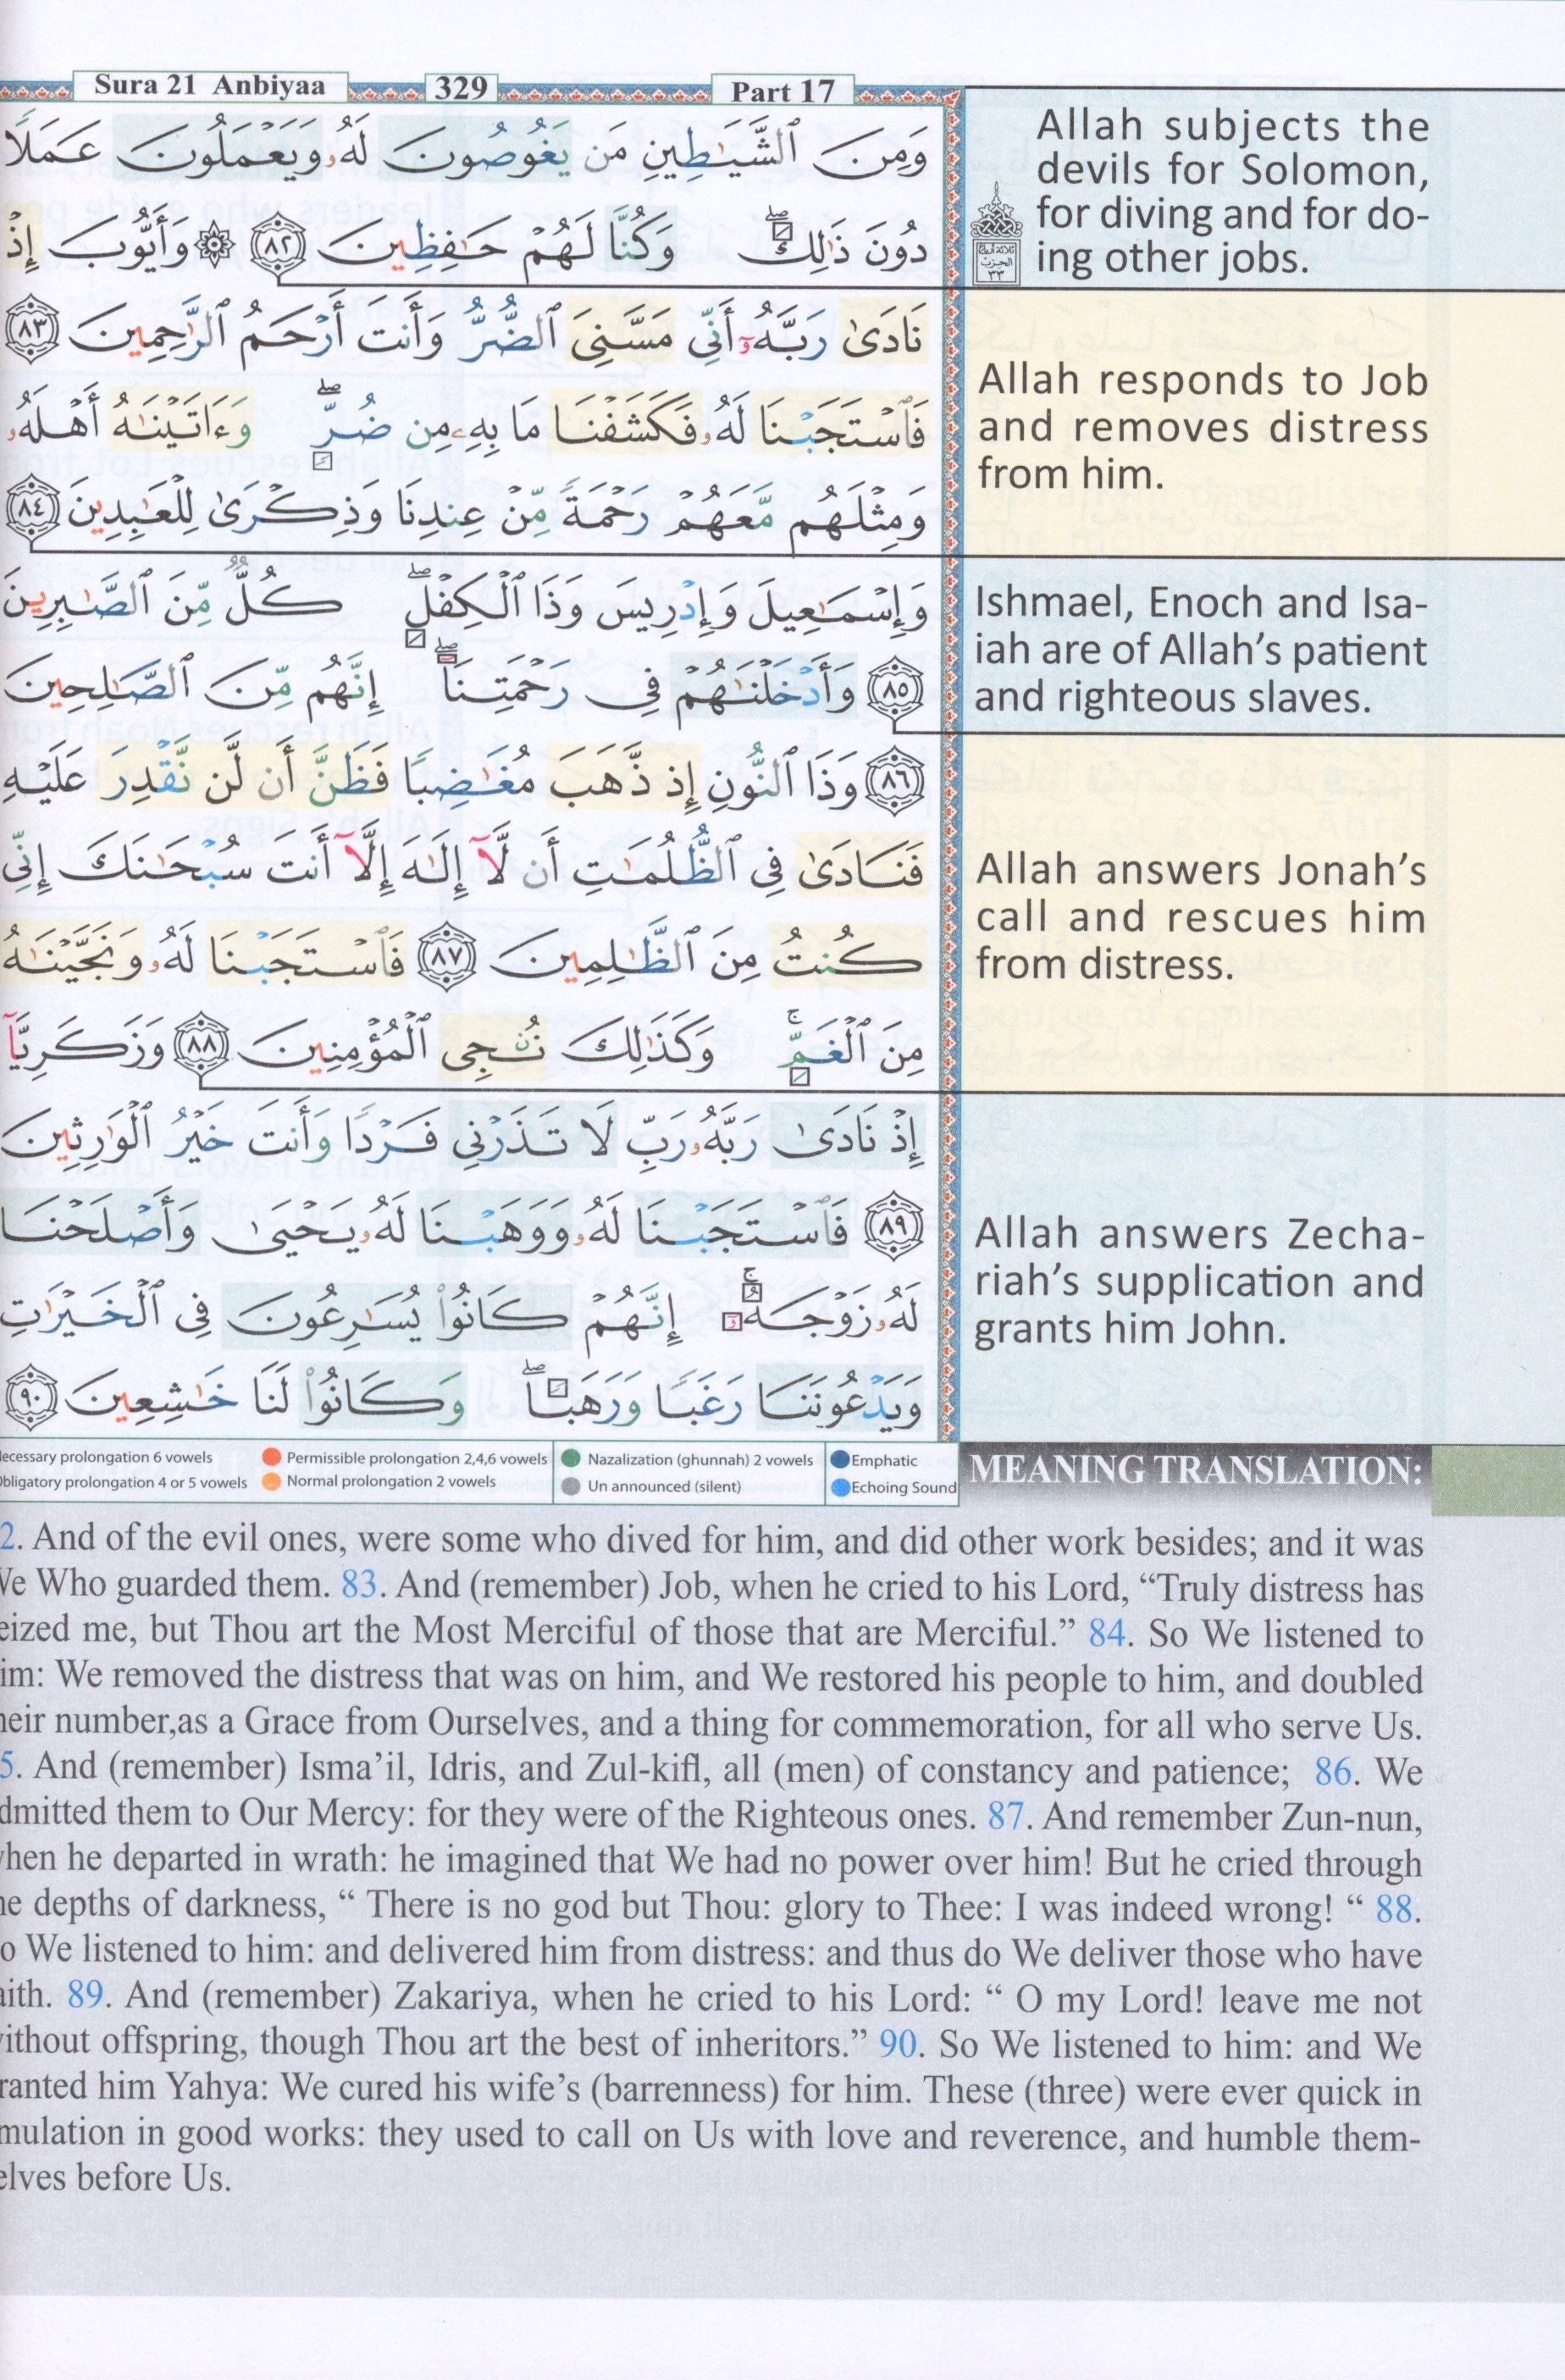 Sura 21 Anbiyaa
329
Part 17
وَمِنَ ٱلشَّيَـٰطِينِ مَن يَغُوصُونَ لَهُۥ وَيَعْمَلُونَ عَمَلًا
دُونَ ذَٰلِكَ ۖ وَكُنَّا لَهُمْ حَـٰفِظِينَ ٨٢ ۞ وَأَيُّوبَ إِذْ
نَادَىٰ رَبَّهُۥٓ أَنِّى مَسَّنِىَ ٱلضُّرُّ وَأَنتَ أَرْحَمُ ٱلرَّٰحِمِينَ ٨٣
فَٱسْتَجَبْنَا لَهُۥ فَكَشَفْنَا مَا بِهِۦ مِن ضُرٍّ ۖ وَءَاتَيْنَـٰهُ أَهْلَهُۥ
وَمِثْلَهُم مَّعَهُمْ رَحْمَةً مِّنْ عِندِنَا وَذِكْرَىٰ لِلْعَـٰبِدِينَ ٨٤
وَإِسْمَـٰعِيلَ وَإِدْرِيسَ وَذَا ٱلْكِفْلِ ۖ كُلٌّ مِّنَ ٱلصَّـٰبِرِينَ
٨٥ وَأَدْخَلْنَـٰهُمْ فِى رَحْمَتِنَآ ۖ إِنَّهُم مِّنَ ٱلصَّـٰلِحِينَ
٨٦ وَذَا ٱلنُّونِ إِذ ذَّهَبَ مُغَـٰضِبًا فَظَنَّ أَن لَّن نَّقْدِرَ عَلَيْهِ
فَنَادَىٰ فِى ٱلظُّلُمَـٰتِ أَن لَّآ إِلَـٰهَ إِلَّآ أَنتَ سُبْحَـٰنَكَ إِنِّى
كُنتُ مِنَ ٱلظَّـٰلِمِينَ ٨٧ فَٱسْتَجَبْنَا لَهُۥ وَنَجَّيْنَـٰهُ
مِنَ ٱلْغَمِّ ۚ وَكَذَٰلِكَ نُـۨجِى ٱلْمُؤْمِنِينَ ٨٨ وَزَكَرِيَّآ
إِذْ نَادَىٰ رَبَّهُۥ رَبِّ لَا تَذَرْنِى فَرْدًا وَأَنتَ خَيْرُ ٱلْوَٰرِثِينَ
٨٩ فَٱسْتَجَبْنَا لَهُۥ وَوَهَبْنَا لَهُۥ يَحْيَىٰ وَأَصْلَحْنَا
لَهُۥ زَوْجَهُۥٓ ۚ إِنَّهُمْ كَانُوا۟ يُسَـٰرِعُونَ فِى ٱلْخَيْرَٰتِ
وَيَدْعُونَنَا رَغَبًا وَرَهَبًا ۖ وَكَانُوا۟ لَنَا خَـٰشِعِينَ ٩٠
Allah subjects the
devils for Solomon,
for diving and for do-
ing other jobs.
Allah responds to Job
and removes distress
from him.
Ishmael, Enoch and Isa-
iah are of Allah’s patient
and righteous slaves.
Allah answers Jonah’s
call and rescues him
from distress.
Allah answers Zecha-
riah’s supplication and
grants him John.
ecessary prolongation 6 vowels
Permissible prolongation 2,4,6 vowels
Nazalization (ghunnah) 2 vowels
Emphatic
bligatory prolongation 4 or 5 vowels
Normal prolongation 2 vowels
Un announced (silent)
Echoing Sound
MEANING TRANSLATION:
2. And of the evil ones, were some who dived for him, and did other work besides; and it was
We Who guarded them. 83. And (remember) Job, when he cried to his Lord, “Truly distress has
eized me, but Thou art the Most Merciful of those that are Merciful.” 84. So We listened to
im: We removed the distress that was on him, and We restored his people to him, and doubled
heir number,as a Grace from Ourselves, and a thing for commemoration, for all who serve Us.
5. And (remember) Isma’il, Idris, and Zul-kifl, all (men) of constancy and patience; 86. We
dmitted them to Our Mercy: for they were of the Righteous ones. 87. And remember Zun-nun,
when he departed in wrath: he imagined that We had no power over him! But he cried through
he depths of darkness, “ There is no god but Thou: glory to Thee: I was indeed wrong! “ 88.
o We listened to him: and delivered him from distress: and thus do We deliver those who have
aith. 89. And (remember) Zakariya, when he cried to his Lord: “ O my Lord! leave me not
without offspring, though Thou art the best of inheritors.” 90. So We listened to him: and We
ranted him Yahya: We cured his wife’s (barrenness) for him. These (three) were ever quick in
mulation in good works: they used to call on Us with love and reverence, and humble them-
elves before Us.